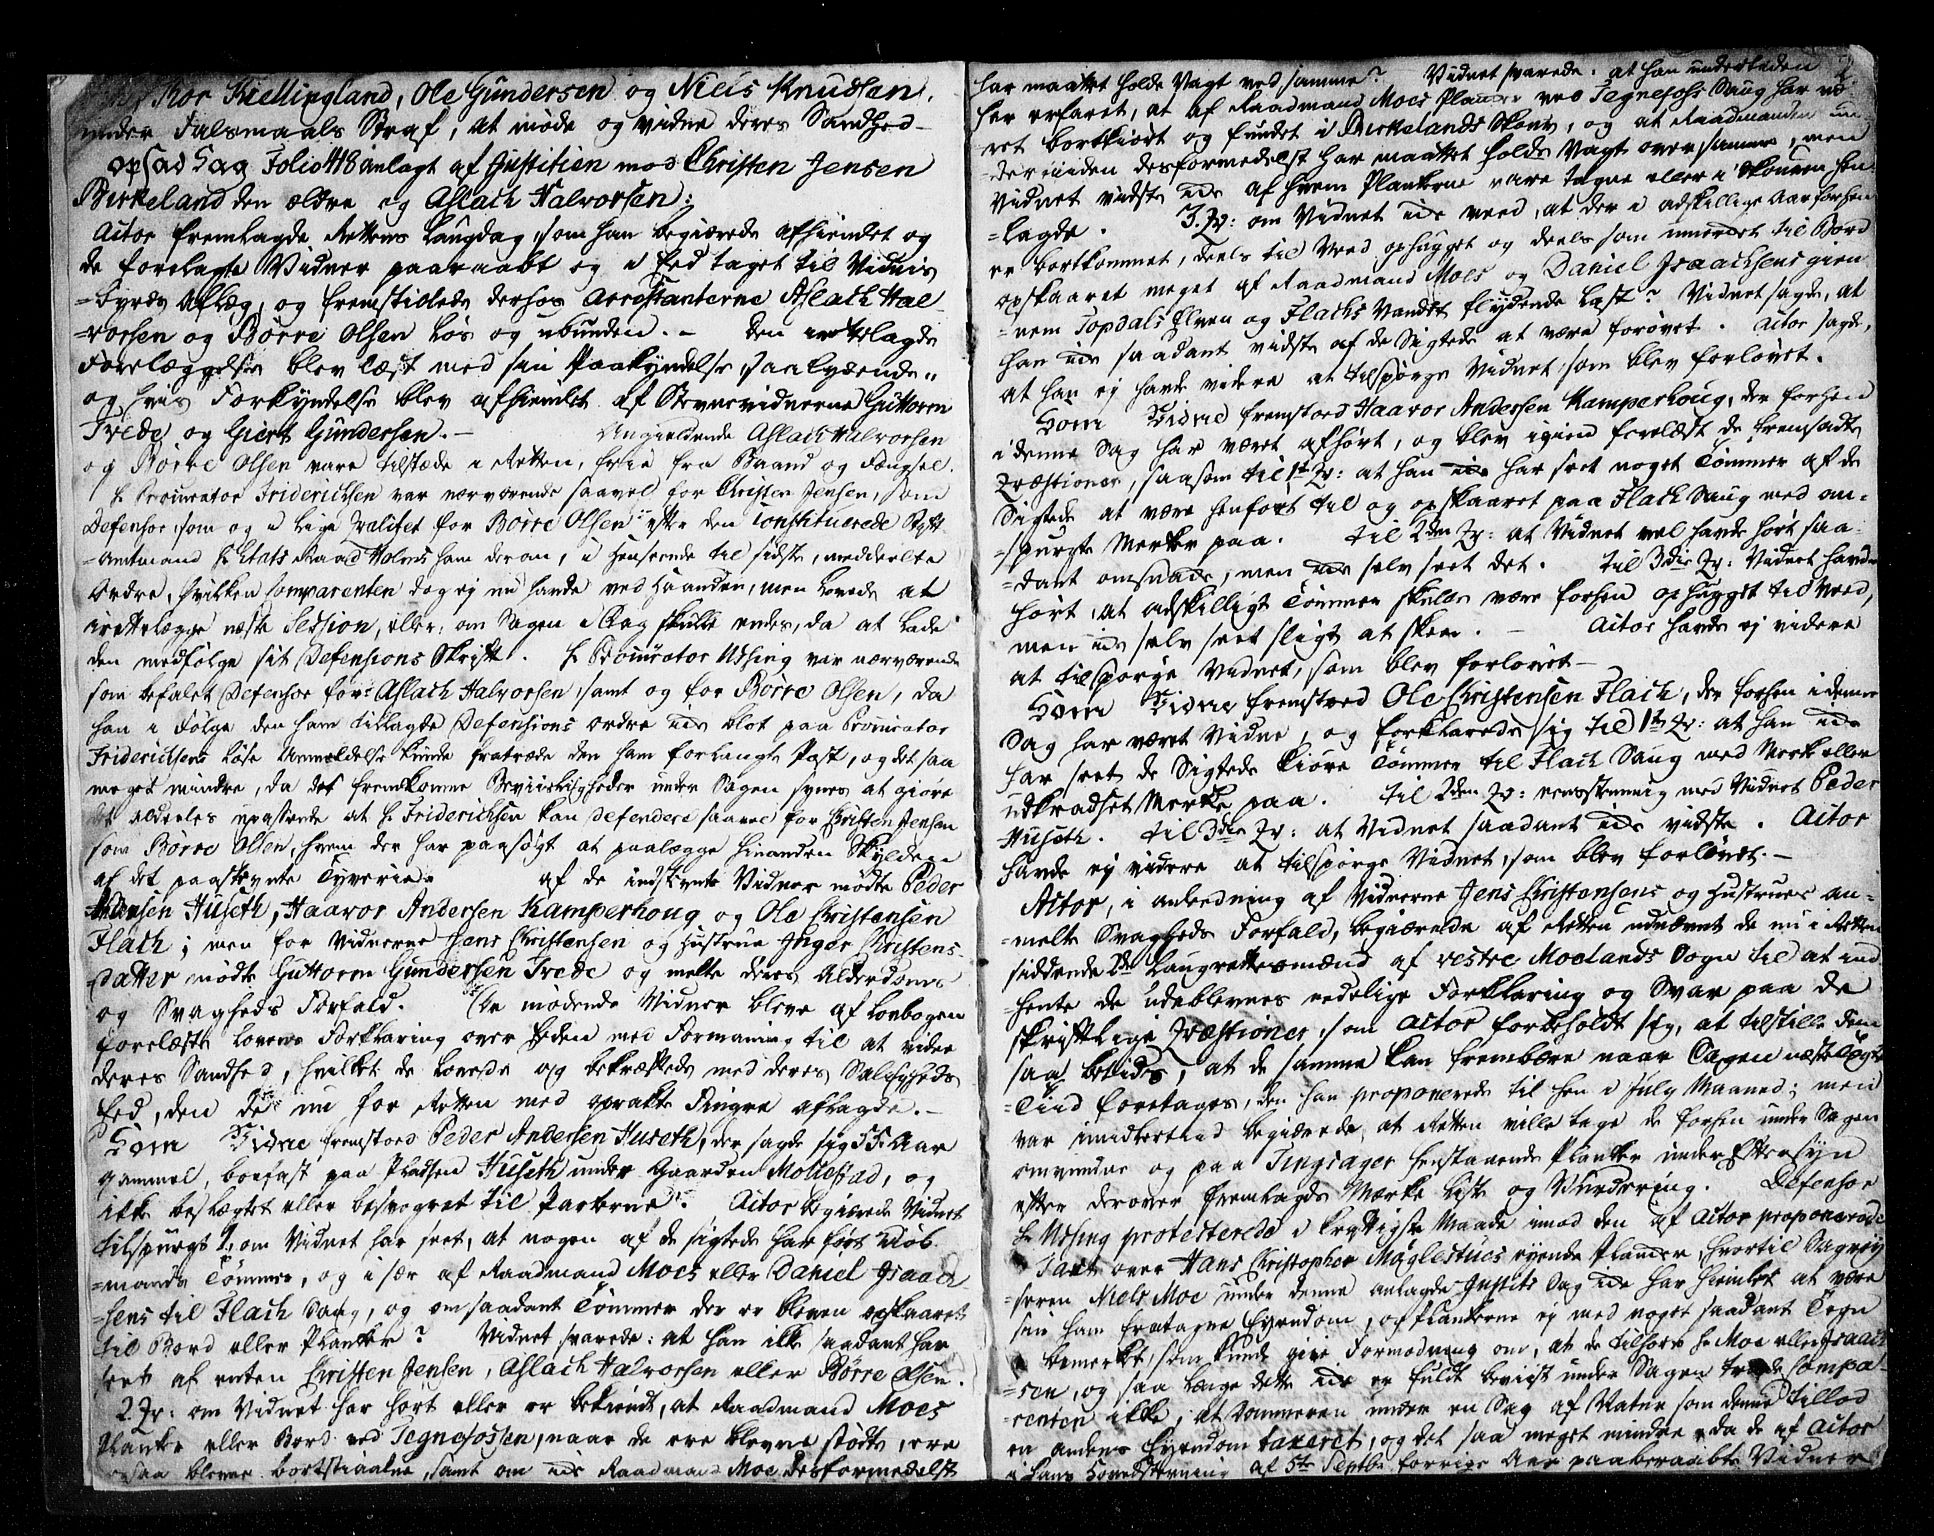 Kor Kiellingland, Ole Gundersen og Niels Knudsen,
under Falsmaals Straf, at møde og vidne deres Sandhed
opsad Sag Folio 418 anlagt af Justitien mod Christen Jensen
Birkeland den ældre og Aslach Halvorsen;
Actor fremlagde Rettens Laugdag, som han begiærede afhiemlet og
de forelagte Vidner paaraabt og i Eed taget til Vidnis
=byrds aflæg, og fremstillede derhos Arrestanterne Aslach Hal
=vorsen og Børre Olsen løs og ubunden. - Den irettelagde
Forelæggelse blev læst med sin Paakyndelse saalydende"
og hvis Forkyndelse blev afhiemlet af Stevnevidnerne Guttorm
Trede og Giert Gundersen. - Angieldende Aslach Halvorsen
og Børre Olsen vare tilstæde i Retten, frie fra Baand og Fængsel.
H. Procurator Friderichsen var nærværende saavel for Christen Jensen, som
Defensor, som og i lige Qvalitet for Børre Olsen efter den Constituerede Stift
=Amtmand H. Etats Raad Holms ham derom, i Henseende til sidste, meddeelte
Ordre, hvilken Comparenten dog ej nu havde ved Haanden, men lovede at
irettelægge næste Session, eller, om Sagen i Dag skulle endes, da at lade
den medfølge sit Defensions Skrift. H. Procurator Ussing var nærværende
som befalet Defensor for Aslach Halvorsen, samt og for Børre Olsen, da
han i Følge den ham tillagde Defensions ordre icke blot paa Procurator
Friderichsens løse Anmældelse kunde fratræde den ham forlangte Post, og det saa
meget mindre, da det fremkomne Beviisligheder under Sagen synes at giøre
det aldeeles upassende at H. Friderichsen kan defendere saavel for Christen Jensen
som Børre Olsen, hvem der har paasøgt at paalægge hinanden Skylden
af det paastevnte Tyverie. af de indstevnte Vidner mødte Peder
Andersen Huseth, Haavor Andersen Kamperhoug og Ole Christensen
Flach; men for Vidnerne Jens Christensen og Hustrue Inger Christens
=Datter mødte Guttorm Gundersen Trede og melte deres Alderdoms
og Svagheds Forfald. De mødende Vidner bleve af Lovbogen
forelæste Lovens Forklaring over Eeden med Formaning til at vidne
deres Sandhed, hvilket de lovede og bekræftede med deres Saligheds
Eed, den de nu for Retten med oprakte Fingre aflagde. -
Som Vidne fremstoed Peder Andersen Huseth, der sagde sig 55 Aar
gammel, boefast paa Pladsen Huseth under Gaarden Mollestad, og
ikke beslægtet eller besvogret til Parterne. Actor begiærede Vidnet
tilspurgt 1, om Vidnet har seet, at nogen af de sigtede har ført
=mands Tømmer, og i sær af Raadmand Moes eller Daniel Isaach
=sens til Flach Saug, og om saadant Tømmer der er bleven opskaaret
til Bord eller Planker? Vidnet svarede: at han ikke saadant har
seet af enten Christen Jensen, Aslach Halvorsen eller Børre Olsen.
2. Qv: om Vidnet har hørt eller er bekiendt, at Raadmand Moes
Planker eller Bord ved Tegnefossen, naar de ere blevne stødte, ere
ogsaa blevne bortstiaalne, samt om icke Raadmand Moe desformedelst
har maattet holde Vagt ved samme? Vidnet svarede: at han undertiden
har erfaret, at af Raadmand Moes Planker ved Tegnefoss Saug har væ
ret bortkiørt og fundet i Birkelands Skove, og at Raadmanden un
dertiiden desformedelst har maattet holde Vagt over samme, men
Vidnet vidste icke af hvem Plankerne vare tagne eller i Skouven hen
=lagde. 3. Qv: om Vidnet icke veed, at der i adskillige Aar forhen
er bortkommet, deels til Veed ophugget og deels som til Bord
opskaaret meget af Raadmand Moes og Daniel Isaachsens gien
=nem Topdals Elven og Flachs Vandet flydende Last? Vidnet sagde, at
han icke saadant vidste af de Sigtede at være forøvet. Actor sagde,
at han ej havde videre at tilspørge Vidnet, som blev forløvet.
Som Vidne fremstoed Haavor Andersen Kamperhoug, der forhen
i denne Sag har været afhørt, og blev igien forelæst de fremsadte
Qvæstioner, saasom til 1ste Qv: at han icke har seet noget Tømmer af de
Sigtede at være henført til og opskaaret paa Flach Saug med om=
=spurgte Merker paa. til 2den Qv: at Vidnet vel havde hørt saa
=dant omsnacke, men icke selv seet det. til 3die Qv: Vidnet havde
hørt, at adskilligt Tømmer skulle være forhen ophugget til Veed,
men icke selv seet sligt at skee. - Actor havde ej videre
at tilspørge Vidnet, som blev forløvet -
Som Vidne fremstoed Ole Christensen Flach, der forhen i denne
Sag har været Vidne, og forklarede sig til 1ste Qv: at han icke
har seet de Sigtede kiøre Tømmer til Flach Saug med Merke eller
udkradset Merke paa. til 2den Qv: eenstemmig med Vidnet Peder
Huseth. til 3die Qv: at Vidnet saadant icke vidste. Actor
havde ej videre at tilspørge Vidnet, som blev forløvet. -
Actor, i anledning af Vidnerne Jens Christensens og Hustrues an=
=melte Svagheds Forfald, begiærede af Retten udnævnt de nu i Retten
siddende 2de Laugrettesmænd af vestre Moelands Sogn til at ind
hente de udeblevnes eedelige Forklaring og Svar paa de
skriftlige Qvæstioner, som Actor forbeholdt sig, at tilstille dem
saa betids, at de samme kan frembære naar Sagen næste Lægte
=Tiid foretages, den han proponerede til hen i July Maaned; men
var imidlertiid begiærede, at Retten ville tage de forhen under Sagen
omvundne og paa Tingsager henstaaende Planker under Eftersyn
efter derover fremlagde Mærke Liste og Vurdering. Defensor
H. Ussing protesterede i kraftigste Maade imod den af Actor proponerede
Taxt over Hans Christopher Møglestues eyende Planker, hvortil Sagvoy
=seren Niels Moe under denne anlagde Justits Sag icke har hiemlet at være
sin ham fratagne Eyendom, og Plankerne ej med noget saadant Tegn
bemerket, som kunde give Formodning om, at de tilhøre H. Moe eller Isaach
=sen, og saa længe dette icke er fuldt beviist under Sagen troede Compa=
=renten ikke, at Dommeren under en Sag af Natur som denne tillod
en andens Eyendom taxeret, og det saa meget mindre, da de af Actor
i hans Hovedstevning af 5te Septbr. forrige Aar paaberaabte Vidner